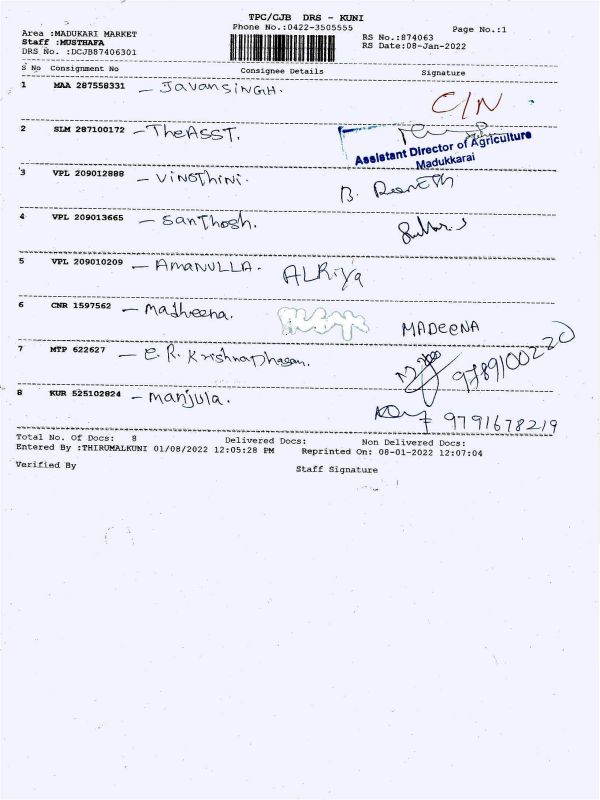 TPC/CJB DRS - KUNI
Phone No.:0422-3505555
Page No.:1
Area :MADUKARI MARKET
RS No.:874063
Staff :MUSTHAFA
RS Date:08-Jan-2022
DRS No. :DCJB87406301
S No Consignment No Consignee Details Signature
1 MAA 287558331 - JavanSINGH. C/N
2 SLM 287100172 - The ASST.
Assistant Director of Agriculture
Madukkarai
3 VPL 209012888 - VINOThini. B.
4 VPL 209013665 - Santhosh.
5 VPL 209010209 - AMANULLA. ALRiya
6 CNR 1597562 - Madheena. MADEENA
7 MTP 622627 - E. R. 9789100220
8 KUR 525102824 - Manjula. 9791678219
Total No. Of Docs: 8 Delivered Docs: Non Delivered Docs:
Entered By :THIRUMALKUNI 01/08/2022 12:05:28 PM Reprinted On: 08-01-2022 12:07:04
Verified By Staff Signature